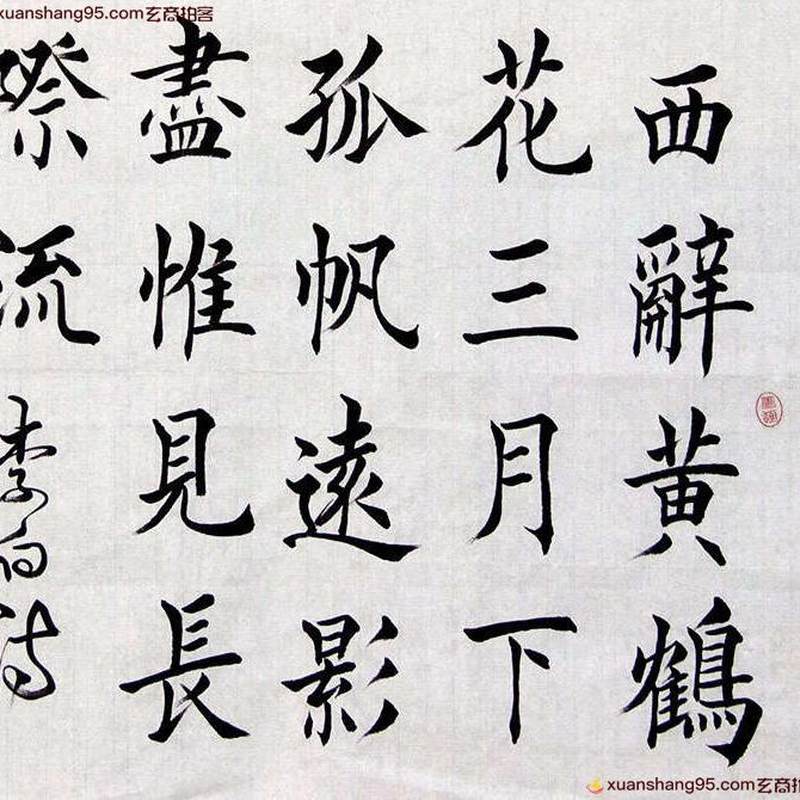 xuanshang95.com玄商拍客
西辭黄鶴
花三月下
孤帆遠影
盡惟見長
際流
李白诗
xuanshang95.com玄商拍